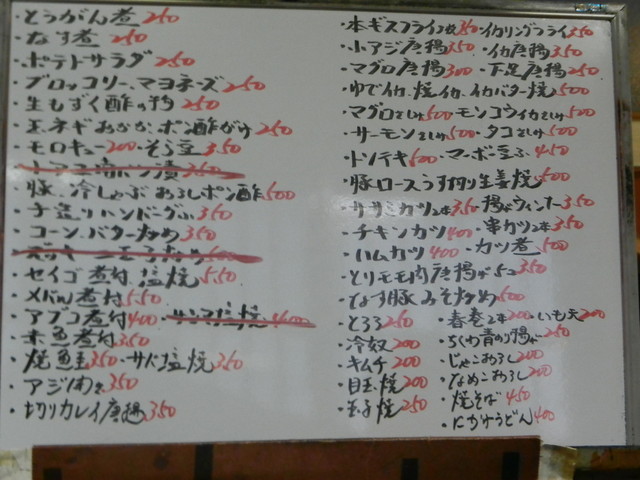 ・とうがん煮 250
・なす煮 250
・ポテトサラダ 250
・ブロッコリー、マヨネーズ 250
・生もずく酢の物 250
・玉ネギおかかポン酢がけ 250
・モロキュー 200・そら豆 350
350
・豚冷しゃぶおろしポン酢 500
・手造りハンバーグ 350
・コーンバター炒め 350
・セイゴ煮付、塩焼 550
・メバル煮付 550
・アブコ煮付 400・サンマ塩焼 400
・赤魚煮付 350
・焼鮭 350・サバ塩焼 350
・アジ 350
・切りカレイ唐揚 350
・本ギスフライ 350・イカリングフライ 350
・小アジ唐揚 350・イカ唐揚 350
・マグロ唐揚 300・下足唐揚 250
・ゆでイカ、焼イカ、イカバター焼 500
・マグロさしみ 500・モンコウイカさしみ 500
・サーモンさしみ 500・タコさしみ 500
・トンテキ 500・マーボ豆ふ 450
・豚ロースうす切り生姜焼 500
・ササミカツ2本 350・揚げウィンナー 350
・チキンカツ 400・串カツ2本 350
・ハムカツ 400・カツ煮 500
・とりモモ肉唐揚げ5コ 350
・なす豚みそ炒め 500
・とろろ 250・春巻2本 200・いも天 200
・冷奴 200・ちくわ青のり揚げ 250
・キムチ 200・じゃこおろし 200
・目玉焼 200・なめこおろし 200
・玉子焼 250・焼そば 450
・にかけうどん 400